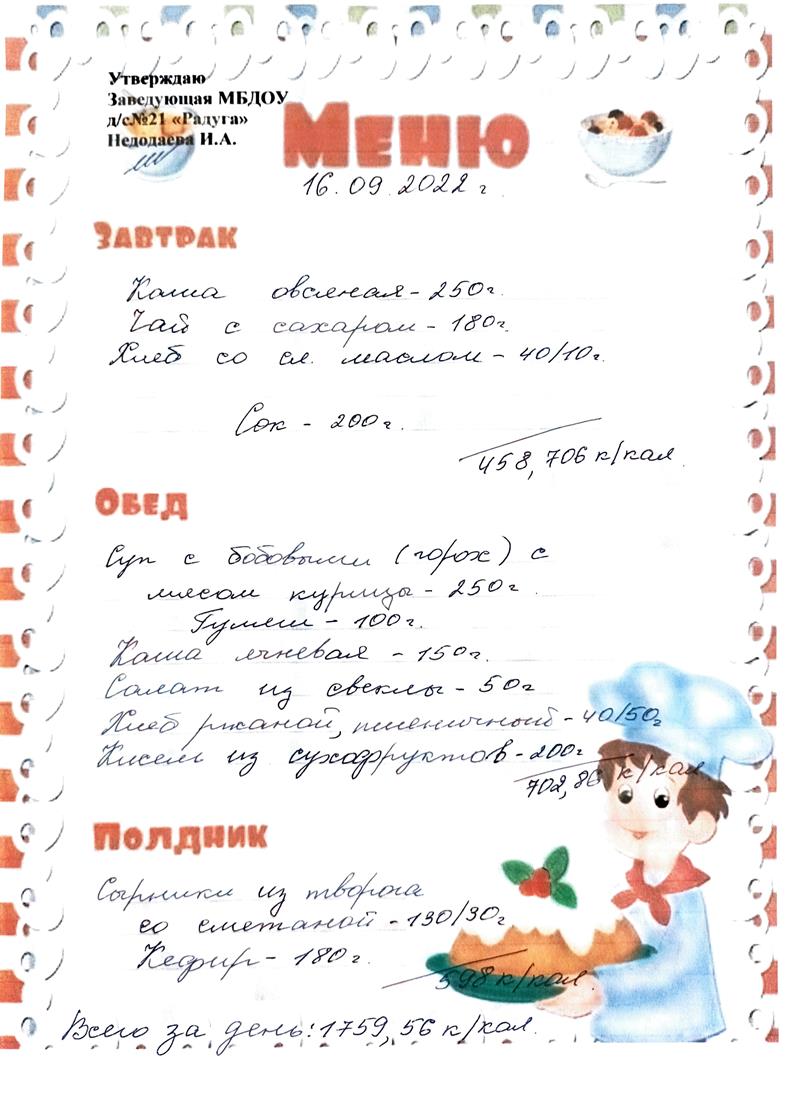 Утверждаю
Заведующая МБДОУ
д/с№21 «Радуга»
Недодаева И.А.
Меню
16.09.2022 г.
Завтрак
Каша овсяная - 250г.
Чай с сахаром - 180г.
Хлеб со сл. маслом - 40/10г.
Сок - 200г.
458,706 к/кал.
Обед
Суп с бобовыми (горох) с
мясом курицы - 250г.
Гуляш - 100г.
Каша ячневая - 150г.
Салат из свеклы - 50г
Хлеб ржаной, пшеничный - 40/50г
Кисель из сухофруктов - 200г
702,86 к/кал.
Полдник
Сырники из творога
со сметаной - 130/30г
Кефир - 180г.
598 к/кал.
Всего за день: 1759,56 к/кал.